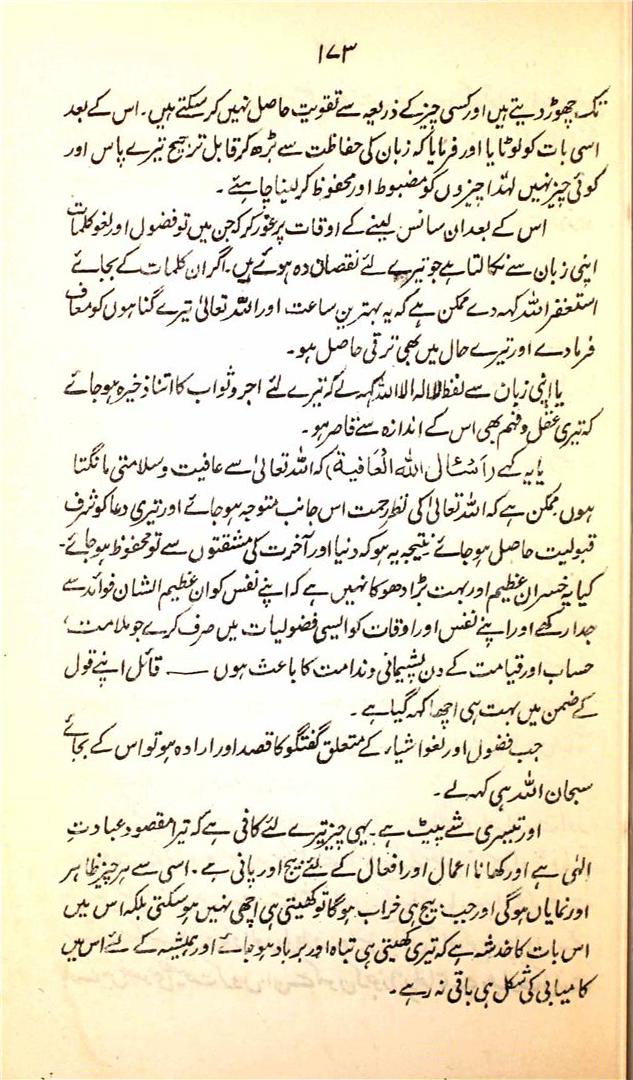 ۱۷۳
تک چھوڑ دیتے ہیں اور کسی چیز کے ذریعہ سے تقویت حاصل نہیں کر سکتے ہیں۔ اس کے بعد
اسی بات کو لوٹایا اور فرمایا کہ زبان کی حفاظت سے بڑھ کر قابل ترجیح تیرے پاس اور
کوئی چیز نہیں لہٰذا چیزوں کو مضبوط اور محفوظ کر لینا چاہئے۔
اس کے بعد ان سانس لینے کے اوقات پر غور کر کہ جن میں تو فضول اور لغو کلمات
اپنی زبان سے نکالتا ہے جو تیرے لئے نقصان دہ ہوئے ہیں۔ اگر ان کلمات کے بجائے
استغفر اللہ کہہ دے ممکن ہے کہ یہ بہترین ساعت اور اللہ تعالیٰ تیرے گناہوں کو معاف
فرما دے اور تیرے حال میں بھی ترقی حاصل ہو۔
یا اپنی زبان سے لفظ لا الہ الا اللہ کہہ لے کہ تیرے لئے اجر و ثواب کا اتنا ذخیرہ ہو جائے
کہ تیری عقل و فہم بھی اس کے اندازہ سے قاصر ہو۔
یا یہ کہے (اَسْئَالُ اللّٰهَ الْعَافِيَةَ) کہ اللہ تعالیٰ سے عافیت و سلامتی مانگتا
ہوں ممکن ہے کہ اللہ تعالیٰ کی نظر رحمت اس جانب متوجہ ہو جائے اور تیری دعا کو شرف
قبولیت حاصل ہو جائے نتیجہ یہ ہو کہ دنیا اور آخرت کی مشقتوں سے تو محفوظ ہو جائے۔
کیا یہ خسران عظیم اور بہت بڑا دھوکا نہیں ہے کہ اپنے نفس کو ان عظیم الشان فوائد سے
جدا رکھے اور اپنے نفس اور اوقات کو ایسی فضولیات میں صرف کرے جو ملامت،
حساب اور قیامت کے دن پشیمانی و ندامت کا باعث ہوں —— قائل اپنے قول
کے ضمن میں بہت ہی اچھا کہہ گیا ہے۔
جب فضول اور لغو اشیاء کے متعلق گفتگو کا قصد اور ارادہ ہو تو اس کے بجائے
سبحان اللہ ہی کہہ لے۔
اور تیسری شے پیٹ ہے۔ یہی چیز تیرے لئے کافی ہے کہ تیرا مقصود عبادتِ
الٰہی ہے اور کھانا اعمال اور افعال کے لئے بیج اور پانی ہے۔ اسی سے ہر چیز ظاہر
اور نمایاں ہوگی اور جب بیج ہی خراب ہوگا تو کھیتی ہی اچھی نہیں ہو سکتی بلکہ اس میں
اس بات کا خدشہ ہے کہ تیری کھیتی ہی تباہ اور برباد ہو جائے اور ہمیشہ کے لئے اس میں
کامیابی کی شکل ہی باقی نہ رہے۔